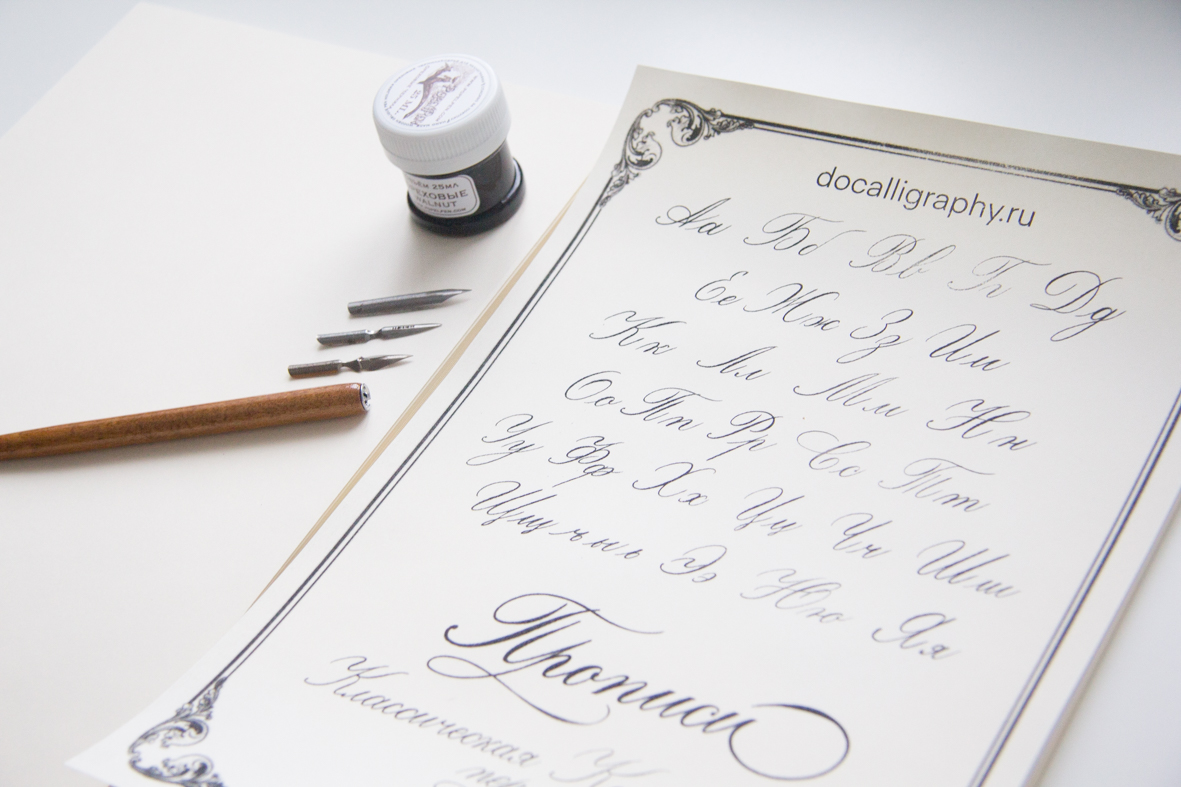 25 мл
ОРЕХОВЫЕ
WALNUT
docalligraphy.ru
Аа Бб Вв Гг Дд
Ее Жж Зз Ии
Кк Лл Мм Нн
Оо Пп Рр Сс Тт
Уу Фф Хх Цц Чч Шш
Щщ ъ ы ь Ээ Юю Яя
Прописи
Классическая